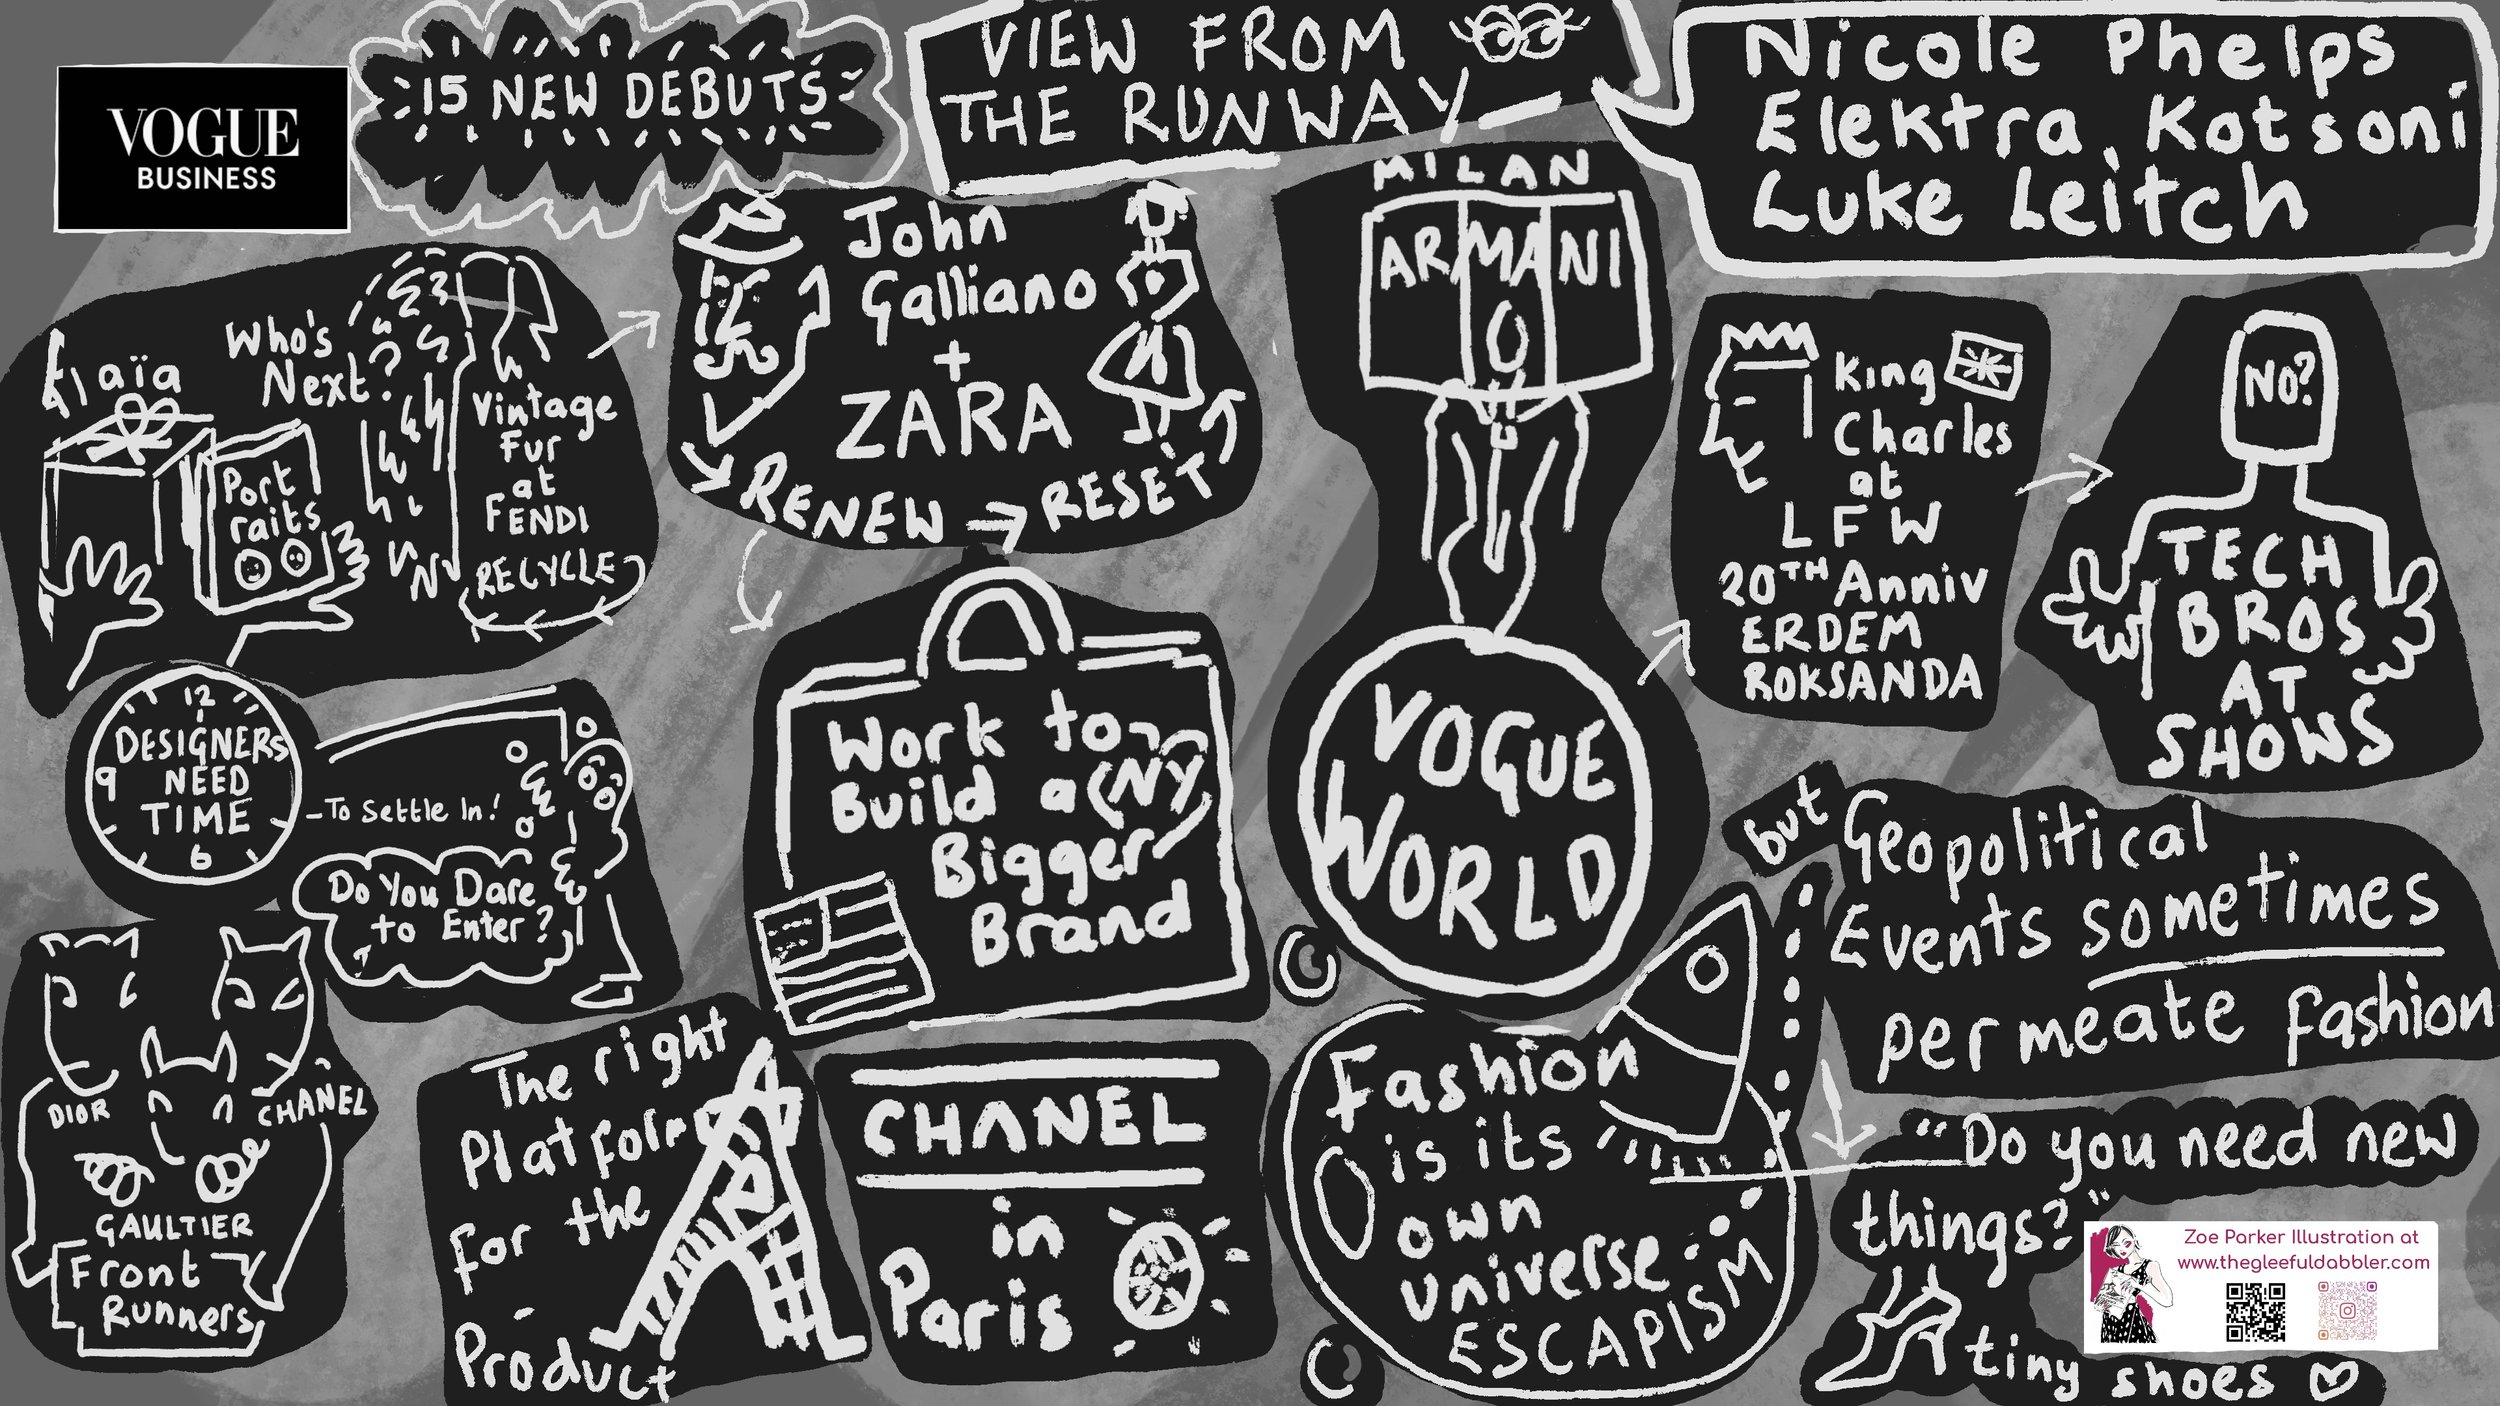 VOGUE
BUSINESS
15 NEW DEBUTS
VIEW FROM
THE RUNWAY
Nicole Phelps
Elektra Kotsoni
Luke Leitch
Alaïa
Who's
Next?
Port
raits
Vintage
Fur
at
FENDI
RECYCLE
John
Galliano
+
ZARA
RENEW → RESET
MILAN
ARMANI
VOGUE
WORLD
King
Charles
at
LFW
20TH Anniv
ERDEM
ROKSANDA
NO?
TECH
BROS
AT
SHOWS
12
9
6
DESIGNERS
NEED
TIME
-To Settle In!
Do You Dare
to Enter?
Work to
Build a (NY)
Bigger
Brand
but
Geopolitical
Events sometimes
permeate fashion
DIOR
CHANEL
GAULTIER
Front
Runners
The right
Platform
for the
-
Product
CHANEL
in
Paris
Fashion
is its
own
universe
ESCAPISM
"Do you need new
things?"
tiny shoes
Zoe Parker Illustration at
www.thegleefuldabbler.com